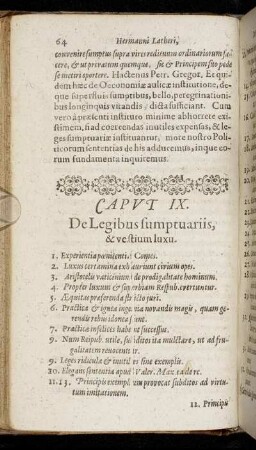 64 Hermanni Latheri,
convenire sumptus supra vires redituum ordinariorum fa-
cere, & ut privatum quemque, sic & Principem suo pede
se metiri oportere. Hactenus Petr. Gregor. Et qui-
dem hæc de Oeconomiæ aulicæ institutione, de-
que superfluis sumptibus, bello, peregrinationi-
bus longinquis vitandis, dicta sufficiant. Cum
vero à præsenti instituto minime abhorrere exi-
stimem, si ad coercendas inutiles expensas, & le-
ges sumptuariæ instituantur, more nostro Poli-
ticorum sententias de his adducemus, inque eo-
rum fundamenta inquiremus.
CAPVT IX.
De Legibus sumptuariis,
& vestium luxu.
1. Experientia pœnitentis Coquei.
2. Luxus certamina exhauriunt civium opes.
3. Aristotelis vaticinium de prodigalitate hominum.
4. Propter luxum & superbiam Respub. evertuntur.
5. Æquitas præferenda stricto juri.
6. Practica & ingenia inge via novandis magis, quam ge-
rendis rebus idonea sunt.
7. Practica infelices habent successus.
8. Num Reipub. utile, subditos ita mulctari, ut ad fru-
galitatem revocentur.
9. Leges ridiculæ & inutiles sine exemplis.
10. Elegans sententia apud Valer. Max. ea de re.
11. 13. Principis exemplum provocat subditos ad virtu-
tum imitationem.
12. Principis